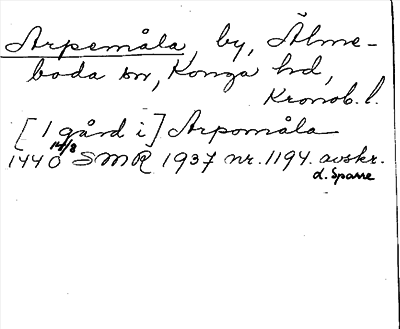 Arpemåla, by, Älme-
boda sn, Konga hd,
Kronob. l.
[1 gård i] Arpomåla
1440 14/8 SMR 1937 nr. 1194. avskr.
d. Sparre